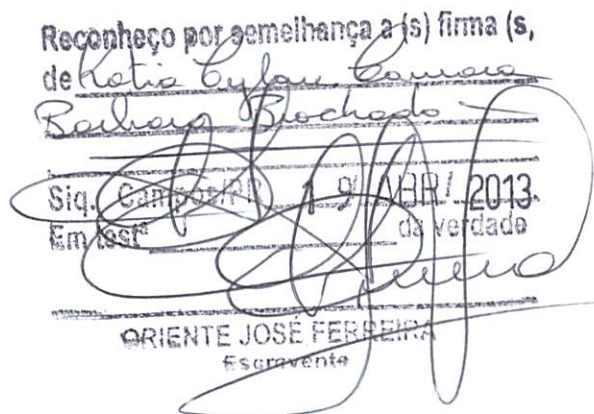 Reconheço por semelhança a (s) firma (s,
de Katia Cylan Camara
Barbara Brochado
Siq. Campos/PR 19/ABR/ 2013.
Em testº da verdade
ORIENTE JOSÉ FERREIRA
Escrevente